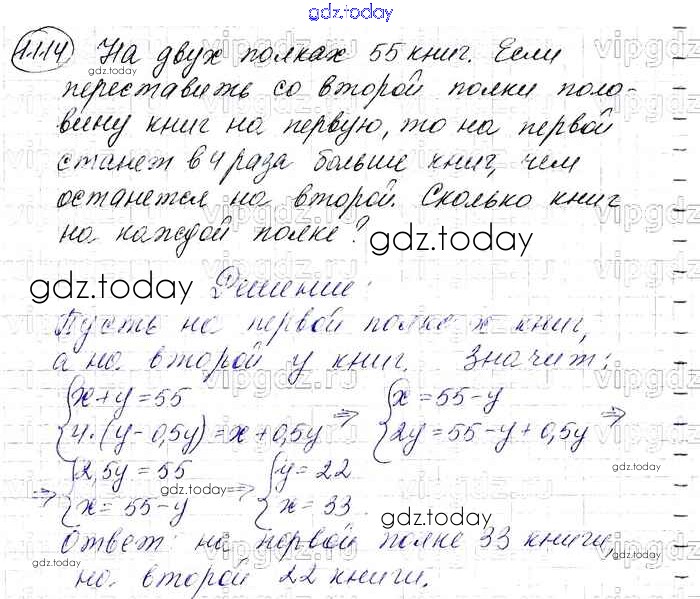 gdz.today
1114 На двух полках 55 книг. Если
переставить со второй полки поло-
вину книг на первую, то на первой
станет в 4 раза больше книг, чем
останется на второй. Сколько книг
на каждой полке?
gdz.today
gdz.today Решение:
Пусть на первой полке x книг,
а на второй y книг. Значит:
{x+y=55 {x=55-y
{4·(y-0,5y)=x+0,5y ⇒ {2y=55-y+0,5y ⇒
{2,5y=55 {y=22
⇒ {x=55-y ⇒ {x=33
gdz.today
Ответ: на первой полке 33 книги,
на второй 22 книги.